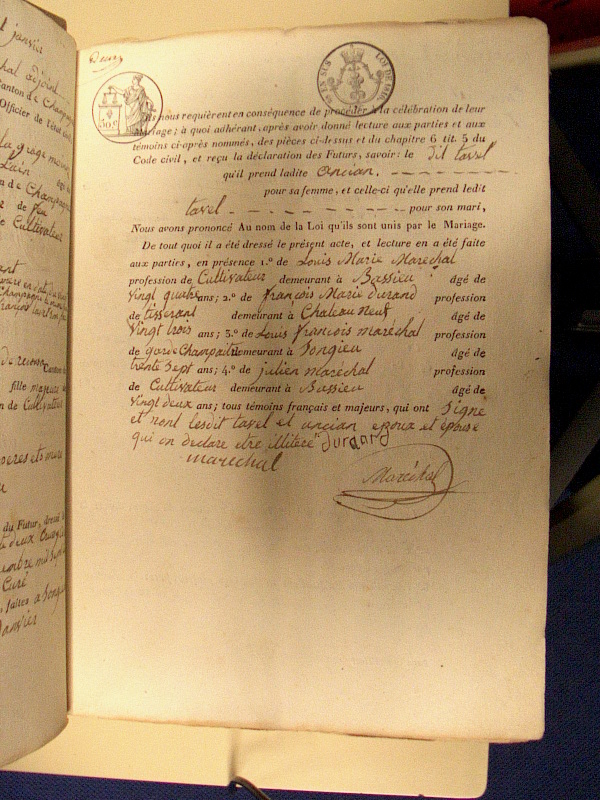 1 janvier
hal adjoint
Canton de Champagne
Officier de l'état
la grage
Lain
de Champagne
de feu
Cultivateur
fille majeure
de Cultivateur
du Futur, dressé
Curé
faites a Songieu
Janvier
Deux
50 C
LOI DE 1816
Ils nous requièrent en conséquence de procéder à la célébration de leur
Mariage; à quoi adhérant, après avoir donné lecture aux parties et aux
témoins ci-après nommés, des pièces ci-dessus et du chapitre 6 tit. 5 du
Code civil, et reçu la déclaration des Futurs, savoir: le dit tavel
qu'il prend ladite ancian.
pour sa femme, et celle-ci qu'elle prend ledit
tavel pour son mari,
Nous avons prononcé Au nom de la Loi qu'ils sont unis par le Mariage.
De tout quoi il a été dressé le présent acte, et lecture en a été faite
aux parties, en présence 1.º de Louis Marie Marechal
profession de Cultivateur demeurant à Bassieu âgé de
vingt quatre ans; 2.º de françois Marie durand profession
de tisserant demeurant à Chateau neuf âgé de
Vingt trois ans; 3.º de Louis francois maréchal profession
de garde Champaitre demeurant à Songieu âgé de
trente Sept ans; 4.º de julien maréchal profession
de Cultivateur demeurant à Bassieu âgé de
vingt deux ans; tous témoins français et majeurs, qui ont Signe
et nont lesdit tavel et ancian epoux et épouse
qui on declare etre illiteré durand
marechal
Maréchal